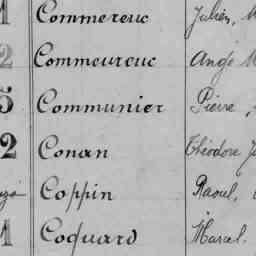 1 Commereuc Julien, M
2 Commeureuc Ange M
5 Communier Pierre,
2 Conan Théodore J
Coppin Raoul,
1 Coquard Marcel.